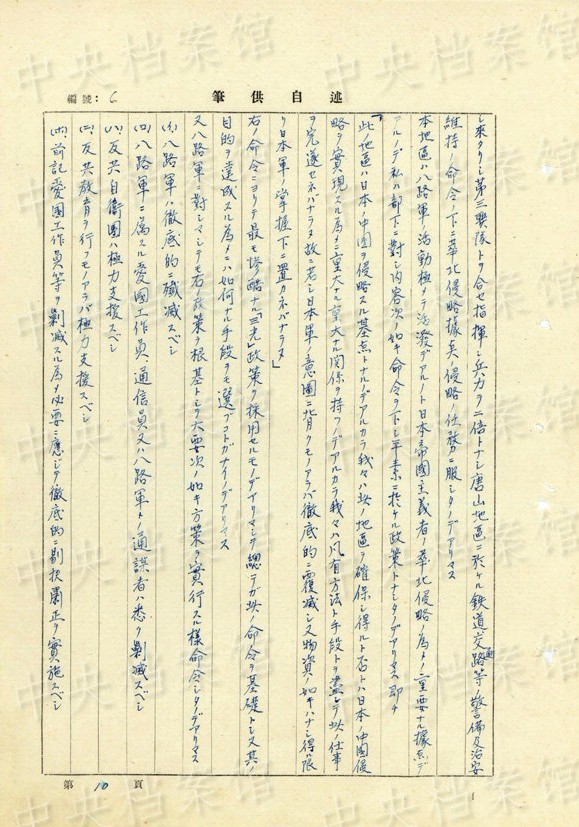 編號：6
筆供自述
シ來タリシ第三聯隊トヲ合セ指揮シ兵力ヲ二倍トナシ唐山地區ニ於ケル鉄道交通路等ノ警備及治安
維持ノ命令ノ下ニ華北侵略據点ノ侵略ノ任務ニ服シタノデアリマス
本地區ハ八路軍ノ活動極メテ活潑デアルノト日本帝國主義者ノ華北侵略ノ為メノ重要ナル據点デ
アルノデ私ハ部下ニ對シ内容次ノ如キ命令ヲ下シ平素ニ於ケル政策トナシタノデアリマス即チ
「此ノ地區ハ日本ノ中國ヲ侵略スル基点トナルノデアルカラ我々ハ此ノ地區ヲ確保シ得ルト否トハ日本ノ中國侵
略ヲ実現スル為メニ重大ナル重大ナル関係ヲ持ツノデアルカラ我々ハ凡有方法ト手段トヲ盡シテ此ノ仕事
ヲ完遂セネバナラヌ故ニ若シ日本軍ノ意圖ニ背クモノアラバ徹底的ニ覆滅シ又物資ノ如キハナシ得ル限
リ日本軍ノ掌握下ニ置カネバナラヌ」
右ノ命令ニヨリテ最モ惨酷ナル三光政策ヲ採用セルモノデアリマシテ總テガ此ノ命令ヲ基礎トシ又其ノ
目的ヲ達成スル為メニハ如何ナル手段ヲモ選ブコトガナイノデアリマス
又八路軍ニ對シマシテモ右ノ政策ヲ根基トシテ大要次ノ如キ方策ヲ實行スル様命令シタノデアリマス
八路軍ハ徹底的ニ殲滅スベシ
八路軍ニ属スル愛國工作員、通信員又ハ八路軍トノ通謀者ハ悉ク剿滅スベシ
反共自衛團ハ極力支援スベシ
反共教育ヲ行フモノアラバ極力支援スベシ
前記愛國工作員等ヲ剿滅スル為メ必要ニ應ジテ徹底的ニ剔抉肅正ヲ實施スベシ
第10頁
中央档案馆